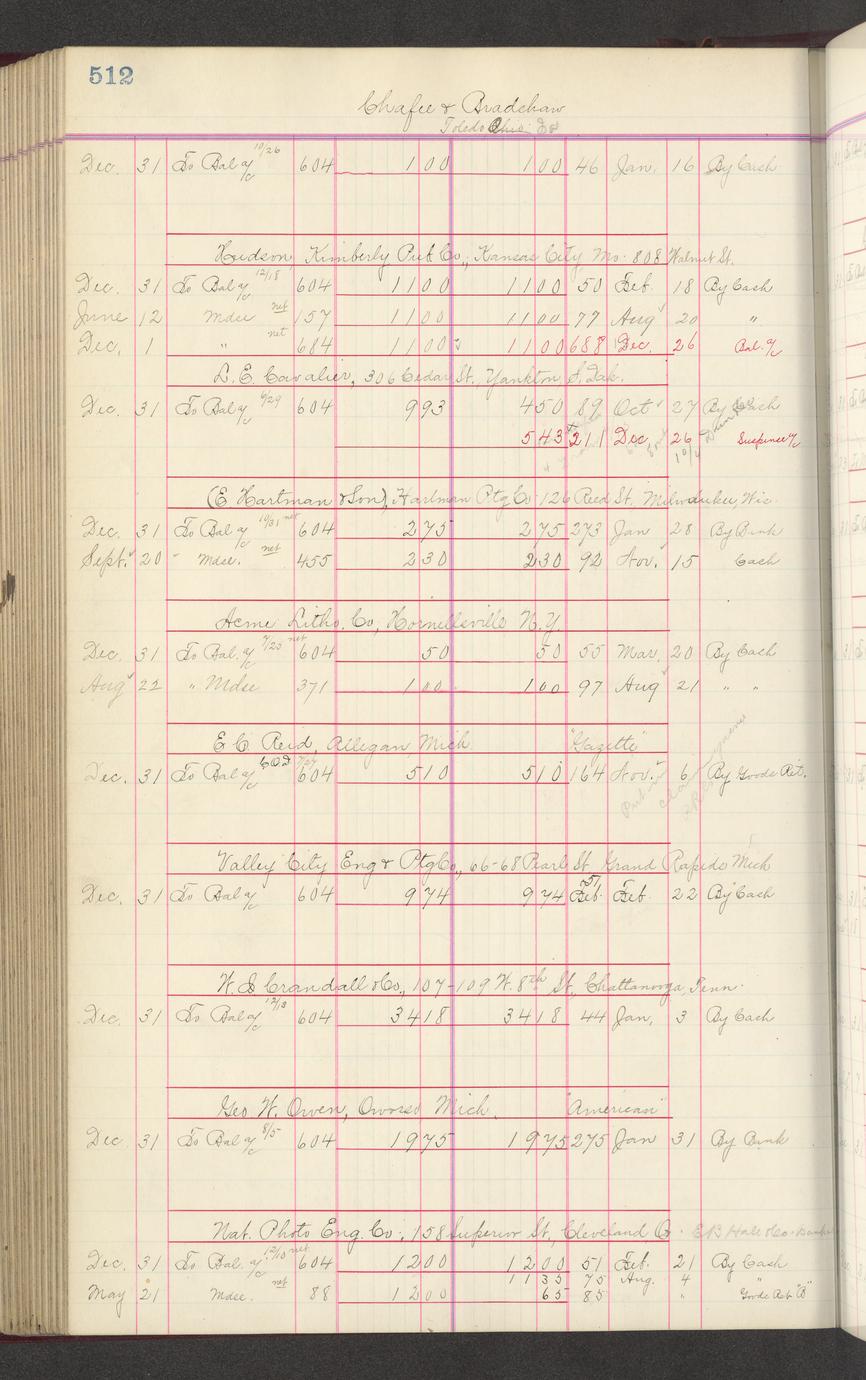 512
Chafee & Bradshaw
Toledo Ohio
Dec. 31 To Bal a/c 10/26 604 1 00 1 00 46 Jan. 16 By Cash
Hudson, Kimberly Pub Co., Kansas City, Mo. 808 Walnut St.
Dec. 31 To Bal a/c 12/18 604 11 00 11 00 50 Feb. 18 By Cash
June 12 Mdse net 157 11 00 11 00 77 Aug 20 "
Dec. 1 " net 684 11 00 11 00 688 Dec. 26 Bal. a/c
L. E. Cavalier, 306 Cedar St. Yankton S. Dak.
Dec. 31 To Bal a/c 6/29 604 9 93 4 50 89 Oct 27 By Cash
5 43 211 Dec. 26 Suspense a/c
(E Hartman & Son), Hartman Ptg Co 126 Reed St. Milwaukee, Wis.
Dec. 31 To Bal a/c 10/31 net 604 2 75 2 75 273 Jan 28 By Bank
Sept. 20 " Mdse. net 455 2 30 2 30 92 Nov. 15 Cash
Acme Litho. Co., Hornellsville N.Y.
Dec. 31 To Bal. a/c 7/25 net 604 50 50 55 Mar. 20 By Cash
Aug 22 " Mdse 371 1 00 1 00 97 Aug 21 " "
E C Reid, Allegan Mich. "Gazette"
Dec. 31 To Bal a/c COD 7/27 604 5 10 5 10 164 Nov. 6 By Goods Ret.
Valley City Eng & Ptg Co., 66-68 Pearl St Grand Rapids Mich
51
Dec. 31 To Bal a/c 604 9 74 9 74 Feb. Feb. 22 By Cash
W. S Crandall & Co., 107-109 W. 8th St, Chattanooga, Tenn.
Dec. 31 To Bal a/c 12/13 604 34 18 34 18 44 Jan. 3 By Cash
Geo W. Owen, Owosso Mich. "American"
Dec 31 To Bal a/c 8/5 604 19 75 19 75 275 Jan 31 By Bank
Nat. Photo Eng. Co., 158 Superior St., Cleveland O. E B Hale & Co. Bank
Dec. 31 To Bal. a/c 12/10 net 604 12 00 12 00 51 Feb. 21 By Cash
11 35 75 Aug. 4 "
May 21 Mdse. net 88 12 00 65 85 " Goods Ret "B"